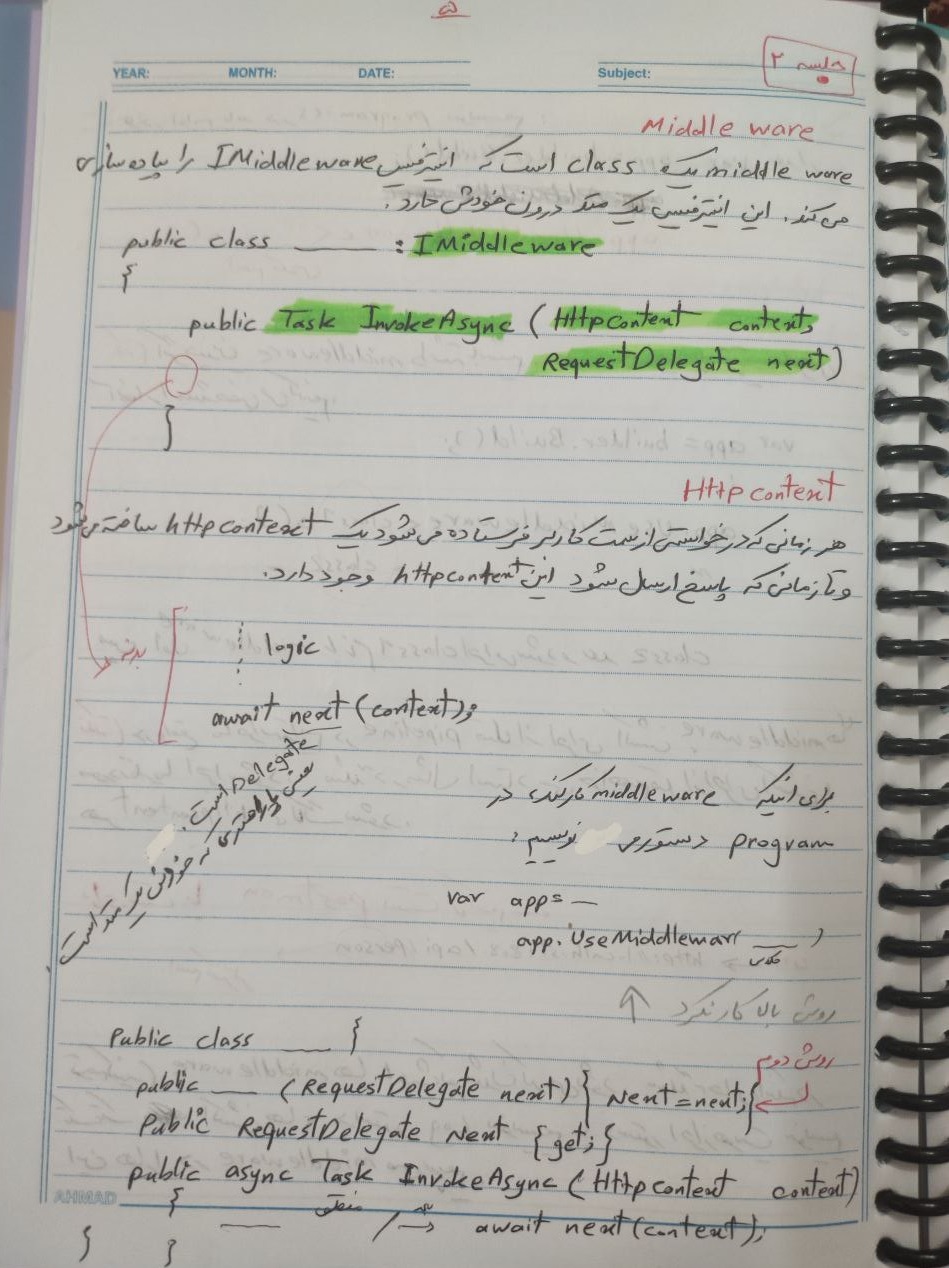 ۵
جلسه ۲
YEAR: MONTH: DATE: Subject:
Middle ware
middle ware یک class است که انیترفیس IMiddleware را پیاده سازی
می کند. این انیترفیس یک متد درون خودش دارد.
public class ____ : IMiddleware
{
public Task InvokeAsync (Httpcontext context,
RequestDelegate next)
}
Httpcontext
هر زمانی که درخواستی از سمت کاربر فرستاده می شود یک httpcontext ساخته می شود
و تا زمانی که پاسخ ارسال شود این httpcontext وجود دارد.
بدنه
logic
await next (context);
Delegate است.
یعنی که خودش یک متد است.
برای اینکه middleware کار کند، در
program دستور می نویسیم:
var app = __
app. UseMiddlewar( ____ )
کلاس
روش بالا کار نکرد ↑
روش دوم
Public class ____ {
public ____ (RequestDelegate next) } Next = next; {
Public RequestDelegate Next {get; {
public async Task InvokeAsync (Httpcontext context)
{ ____ منطق
await next (context);
} }
AHMAD